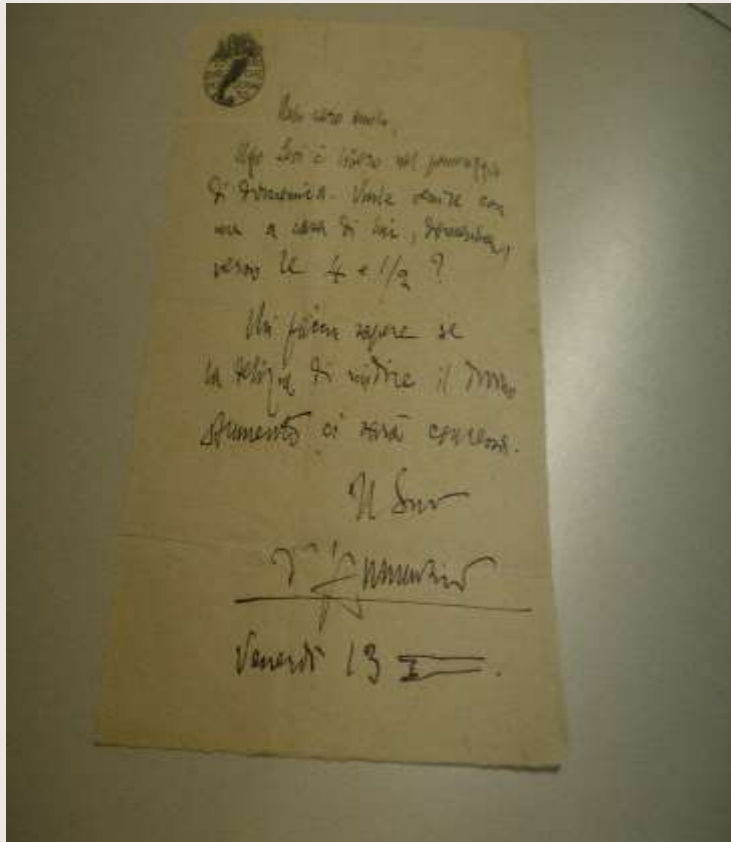 Mio caro amico,
Ugo Levi è libero nel pomeriggio
di domenica. Vuole venire con
me a casa di lui, domenica,
verso le 4 e 1/2?
Mi faccia sapere se
la delizia di udire il
strumento ci sarà concessa.
Il Suo
d'Annunzio
Venerdì 13